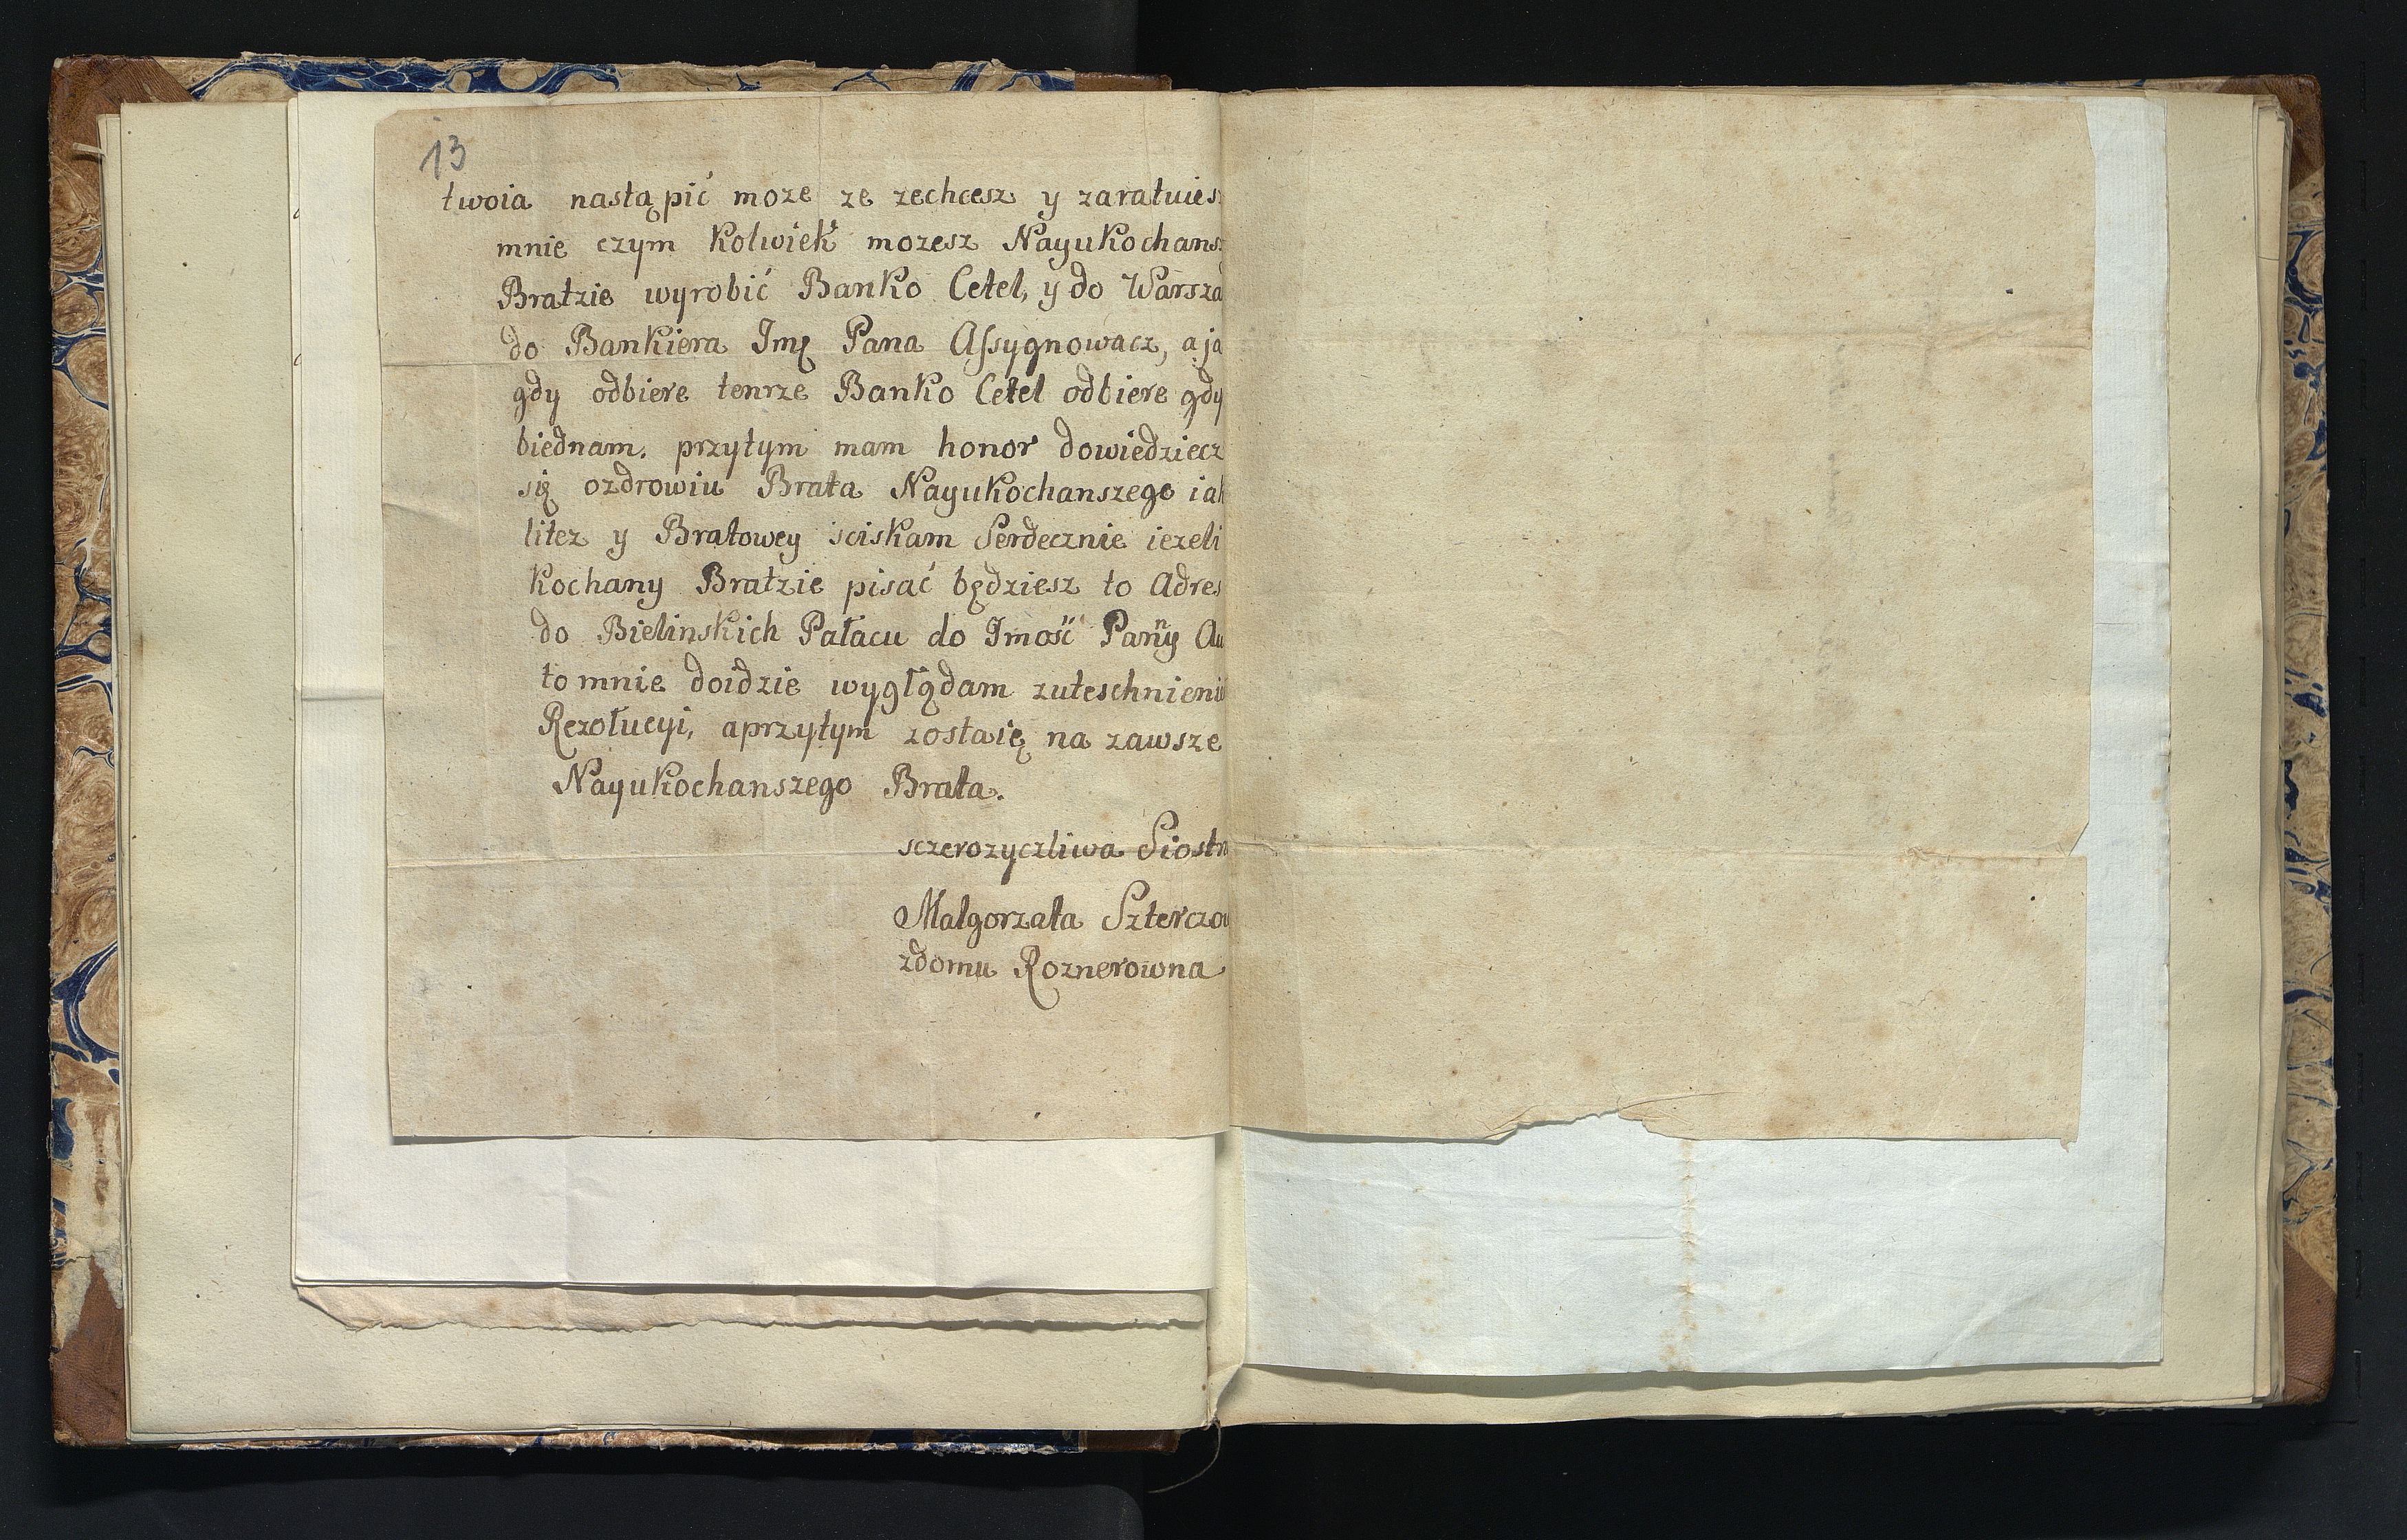 13
twoia nastąpić moze ze zechcesz y zaratuiesz
mnie czym kolwiek mozesz Nayukochansz
Bratzie wyrobić Banko Cetel, y do Warsza
do Bankiera Imę Pana Assygnowacz, a ja
gdy odbiere tenrze Banko Cetel odbiere gdy
biednam. przytym mam honor dowiedziecz
się ozdrowiu Brata Nayukochanszego iak
litez y Bratowey sciskam Serdecznie iezeli
kochany Bratzie pisać będziesz to Adres
do Bielinskich Pałacu do Imość Panny Au
to mnie doidzie wyglądam zuteschnieniu
Rezołucyi, aprzytym zostaię na zawsze
Nayukochanszego Brata.
sczerozyczliwa Siostra
Malgorzata Szterczow
zdomu Roznerowna